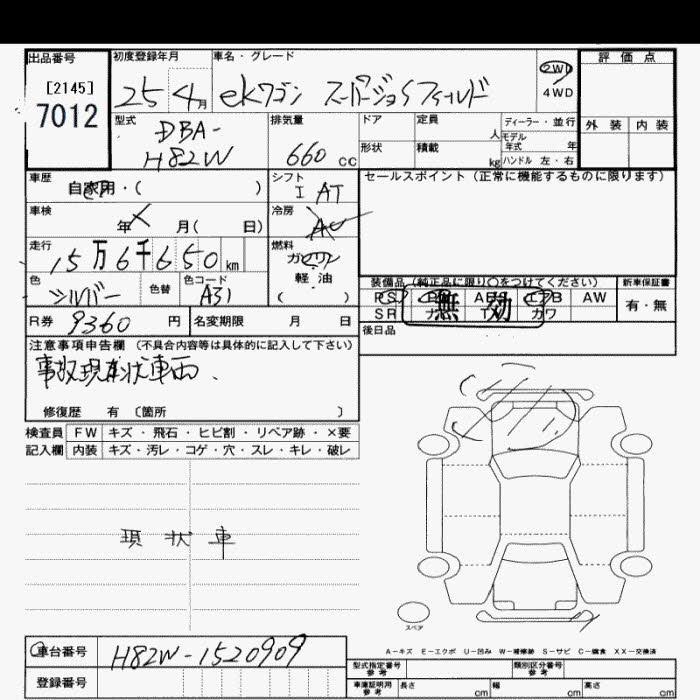 出品番号
[2145]
7012
初度登録年月
25 4月
車名・グレード
ekワゴン
2WD
4WD
評価点
外装 内装
型式
DBA-
H82W
排気量
660 cc
ドア
定員 人
形状
積載 kg
ディーラー・並行
モデル年式 年
ハンドル 左・右
車歴
自家用・( )
シフト
I AT
セールスポイント(正常に機能するものに限ります)
車検
年 月( 日)
冷房
走行
15万6千650km
燃料
ガソリン
軽油
( )
色
シルバー
色替
色コード
A31
装備品(純正品に限り○をつけてください)
新車保証書
PS
AW
SR
カワ
無効
有・無
R券 9360円
名変期限 月 日
後日品
注意事項申告欄(不具合内容等は具体的に記入して下さい)
事故現状車両、
修復歴 有〔箇所 〕
検査員 FW キズ・飛石・ヒビ割・リペア跡・×要
記入欄 内装 キズ・汚レ・コゲ・穴・スレ・キレ・破レ
現状車
スペア
A-キズ E-エクボ U-凹み W-補修跡 S-サビ C-腐食 XX-交換済
車台番号 H82W-1520909
登録番号
型式指定番号参考
類別区分番号参考
車庫証明用参考
長さ cm 幅 cm 高さ cm